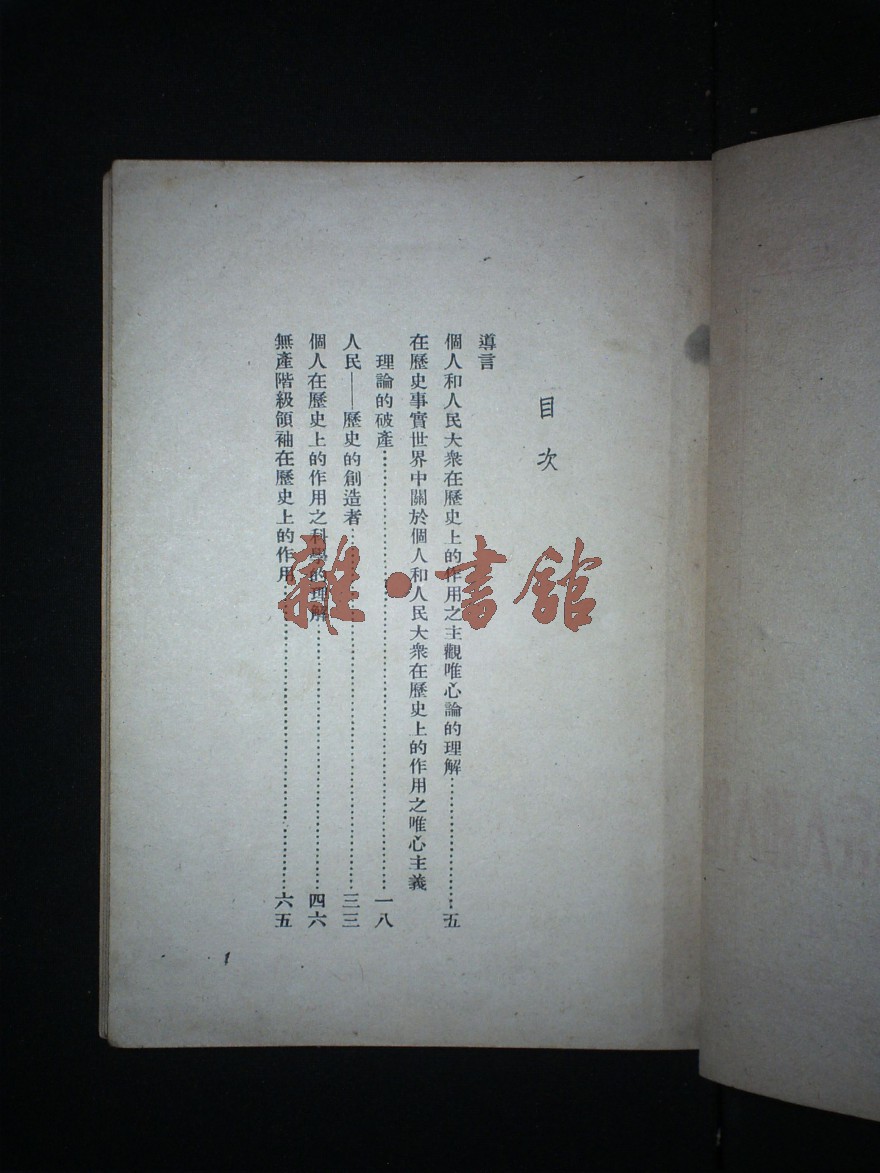 目次
導言
個人和人民大衆在歷史上的作用之主觀唯心論的理解………………五
在歷史事實世界中關於個人和人民大衆在歷史上的作用之唯心主義
理論的破產………………一八
人民——歷史的創造者………………三三
個人在歷史上的作用之科學的理解………………四六
無產階級領袖在歷史上的作用………………六五
1
雜·書館